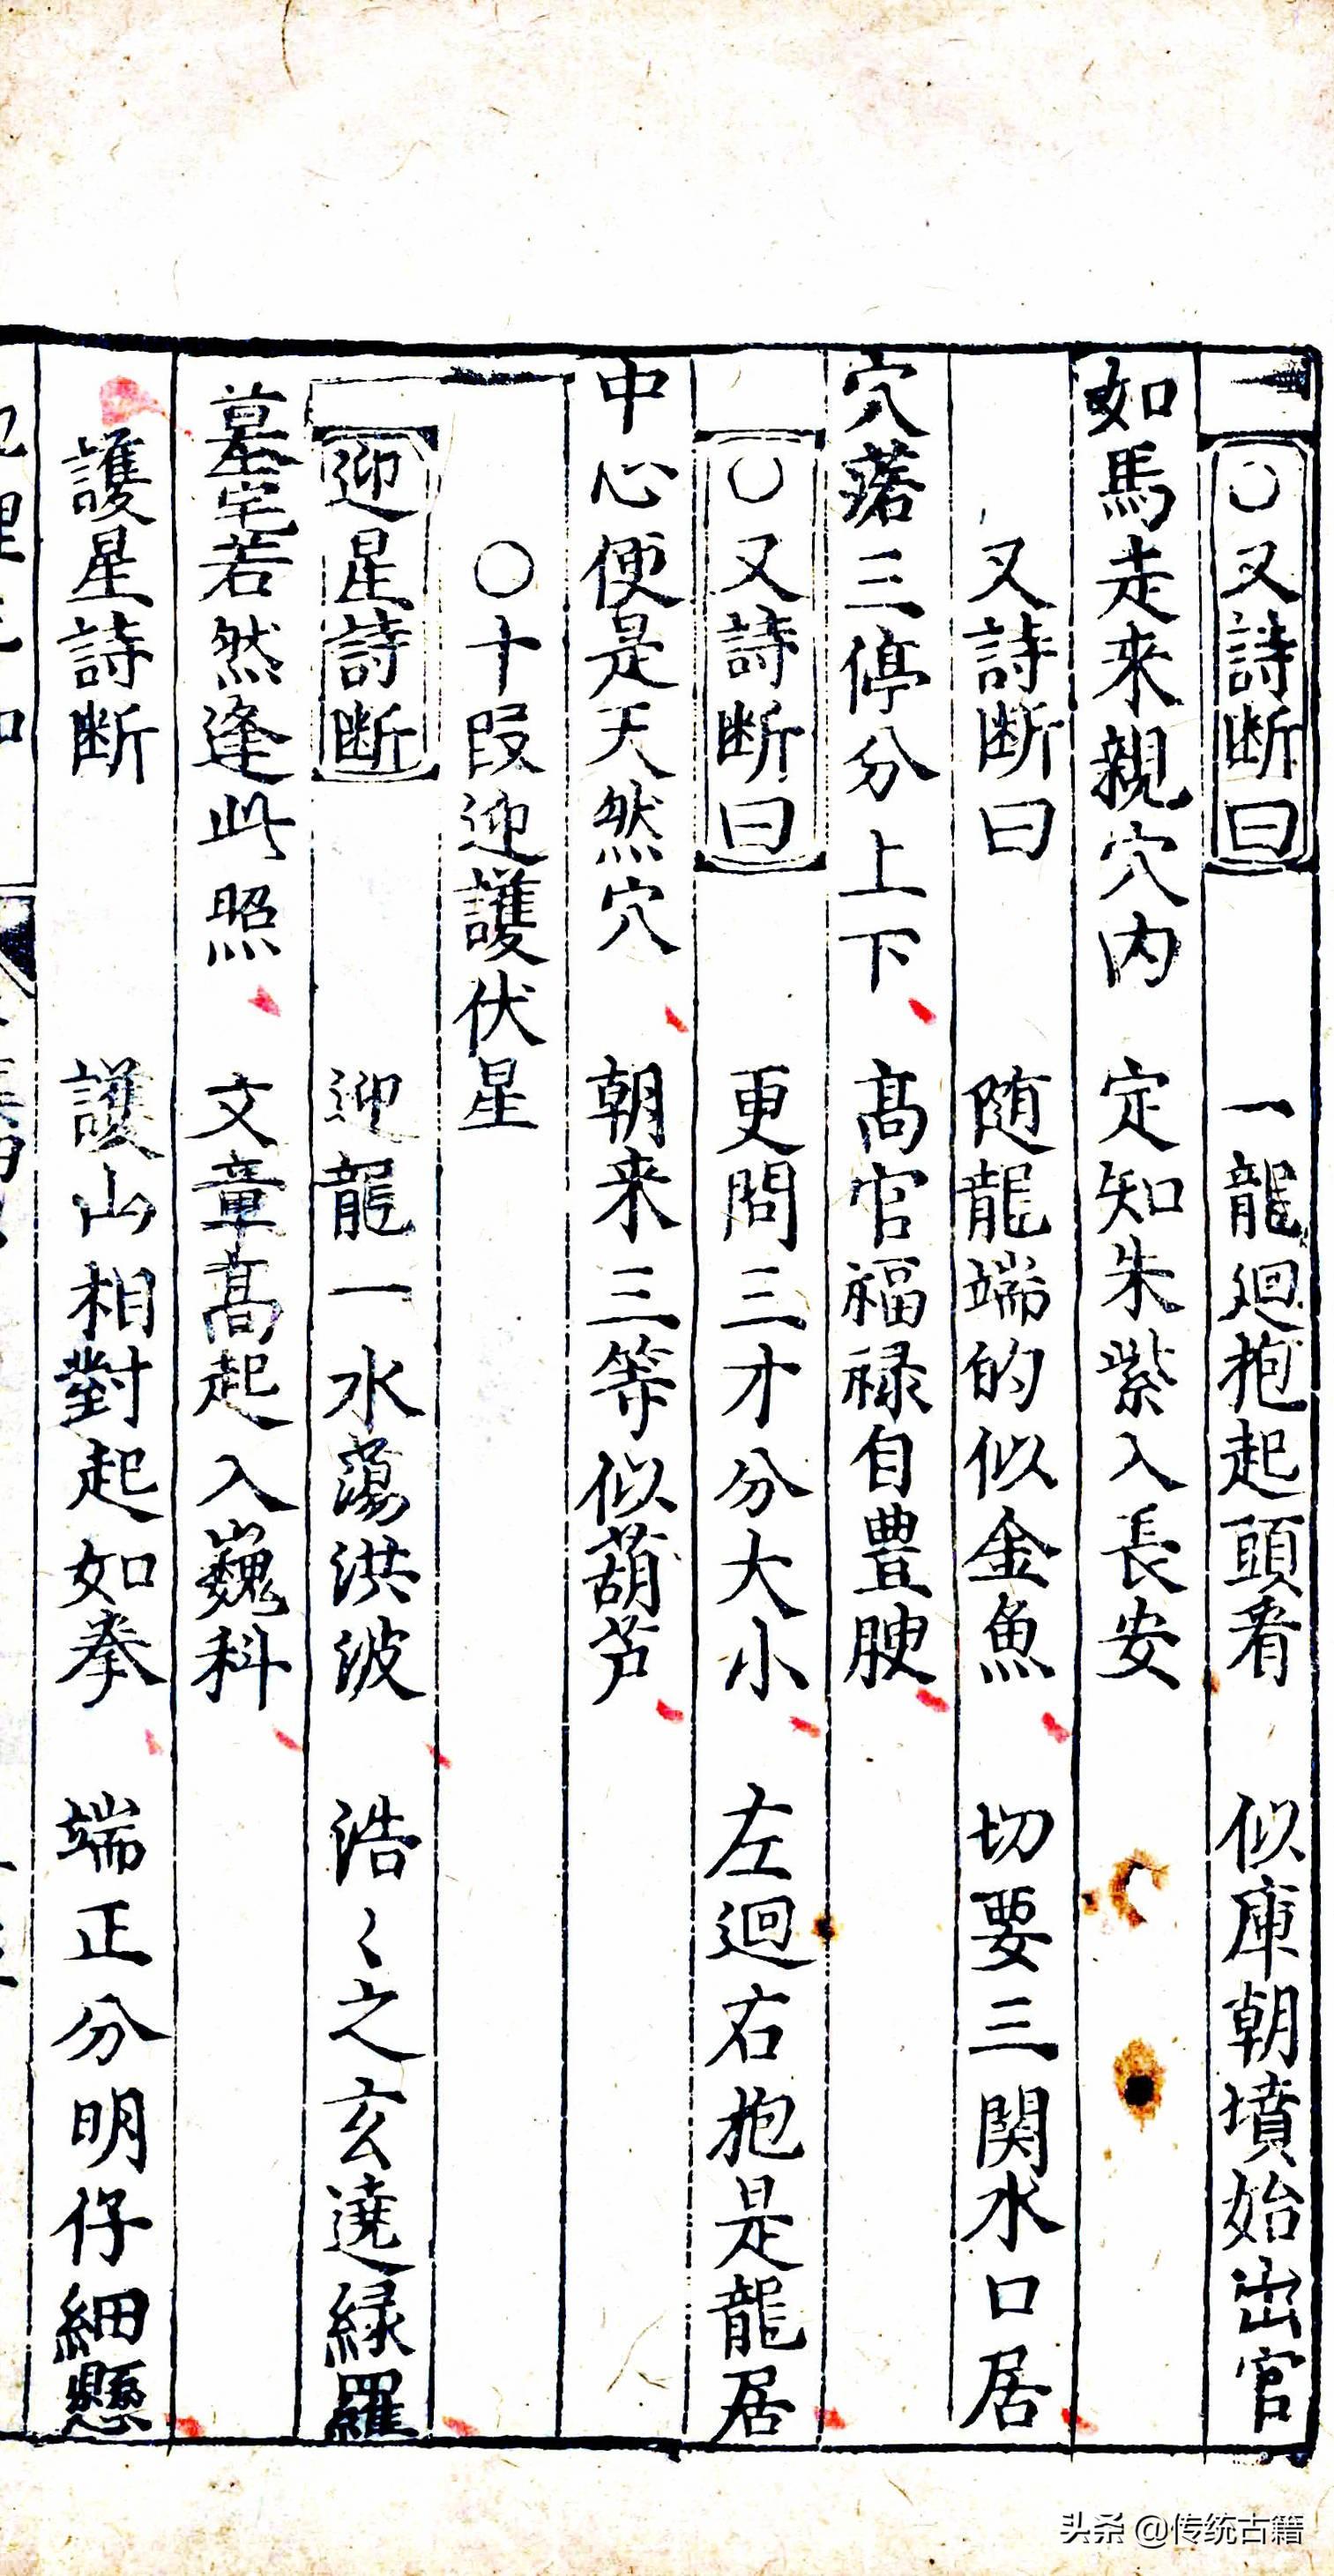 ○又詩断曰　一龍廻抱起頭看　似庫朝墳始出官
如馬走来親穴内　定知朱紫入長安
又詩断曰　随龍端的似金魚　切要三関水口居
穴落三停分上下　髙官福禄自豊腴
○又詩断曰　更問三才分大小　左迴右抱是龍居
中心便是天然穴　朝来三等似葫芦
○十叚迎護伏星
迎星詩断　迎龍一水蕩洪波　浩々之玄遶緑羅
墓宅若然逢此照　文章髙起入巍科
護星詩断　護山相對起如拳　端正分明仔細懸
头条 @传统古籍